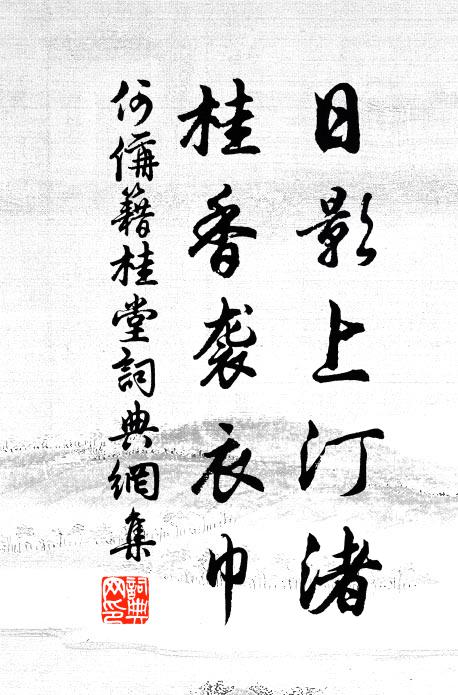 日影上汀渚
桂香袭衣巾
何俌籍桂堂詞典網集
詞典